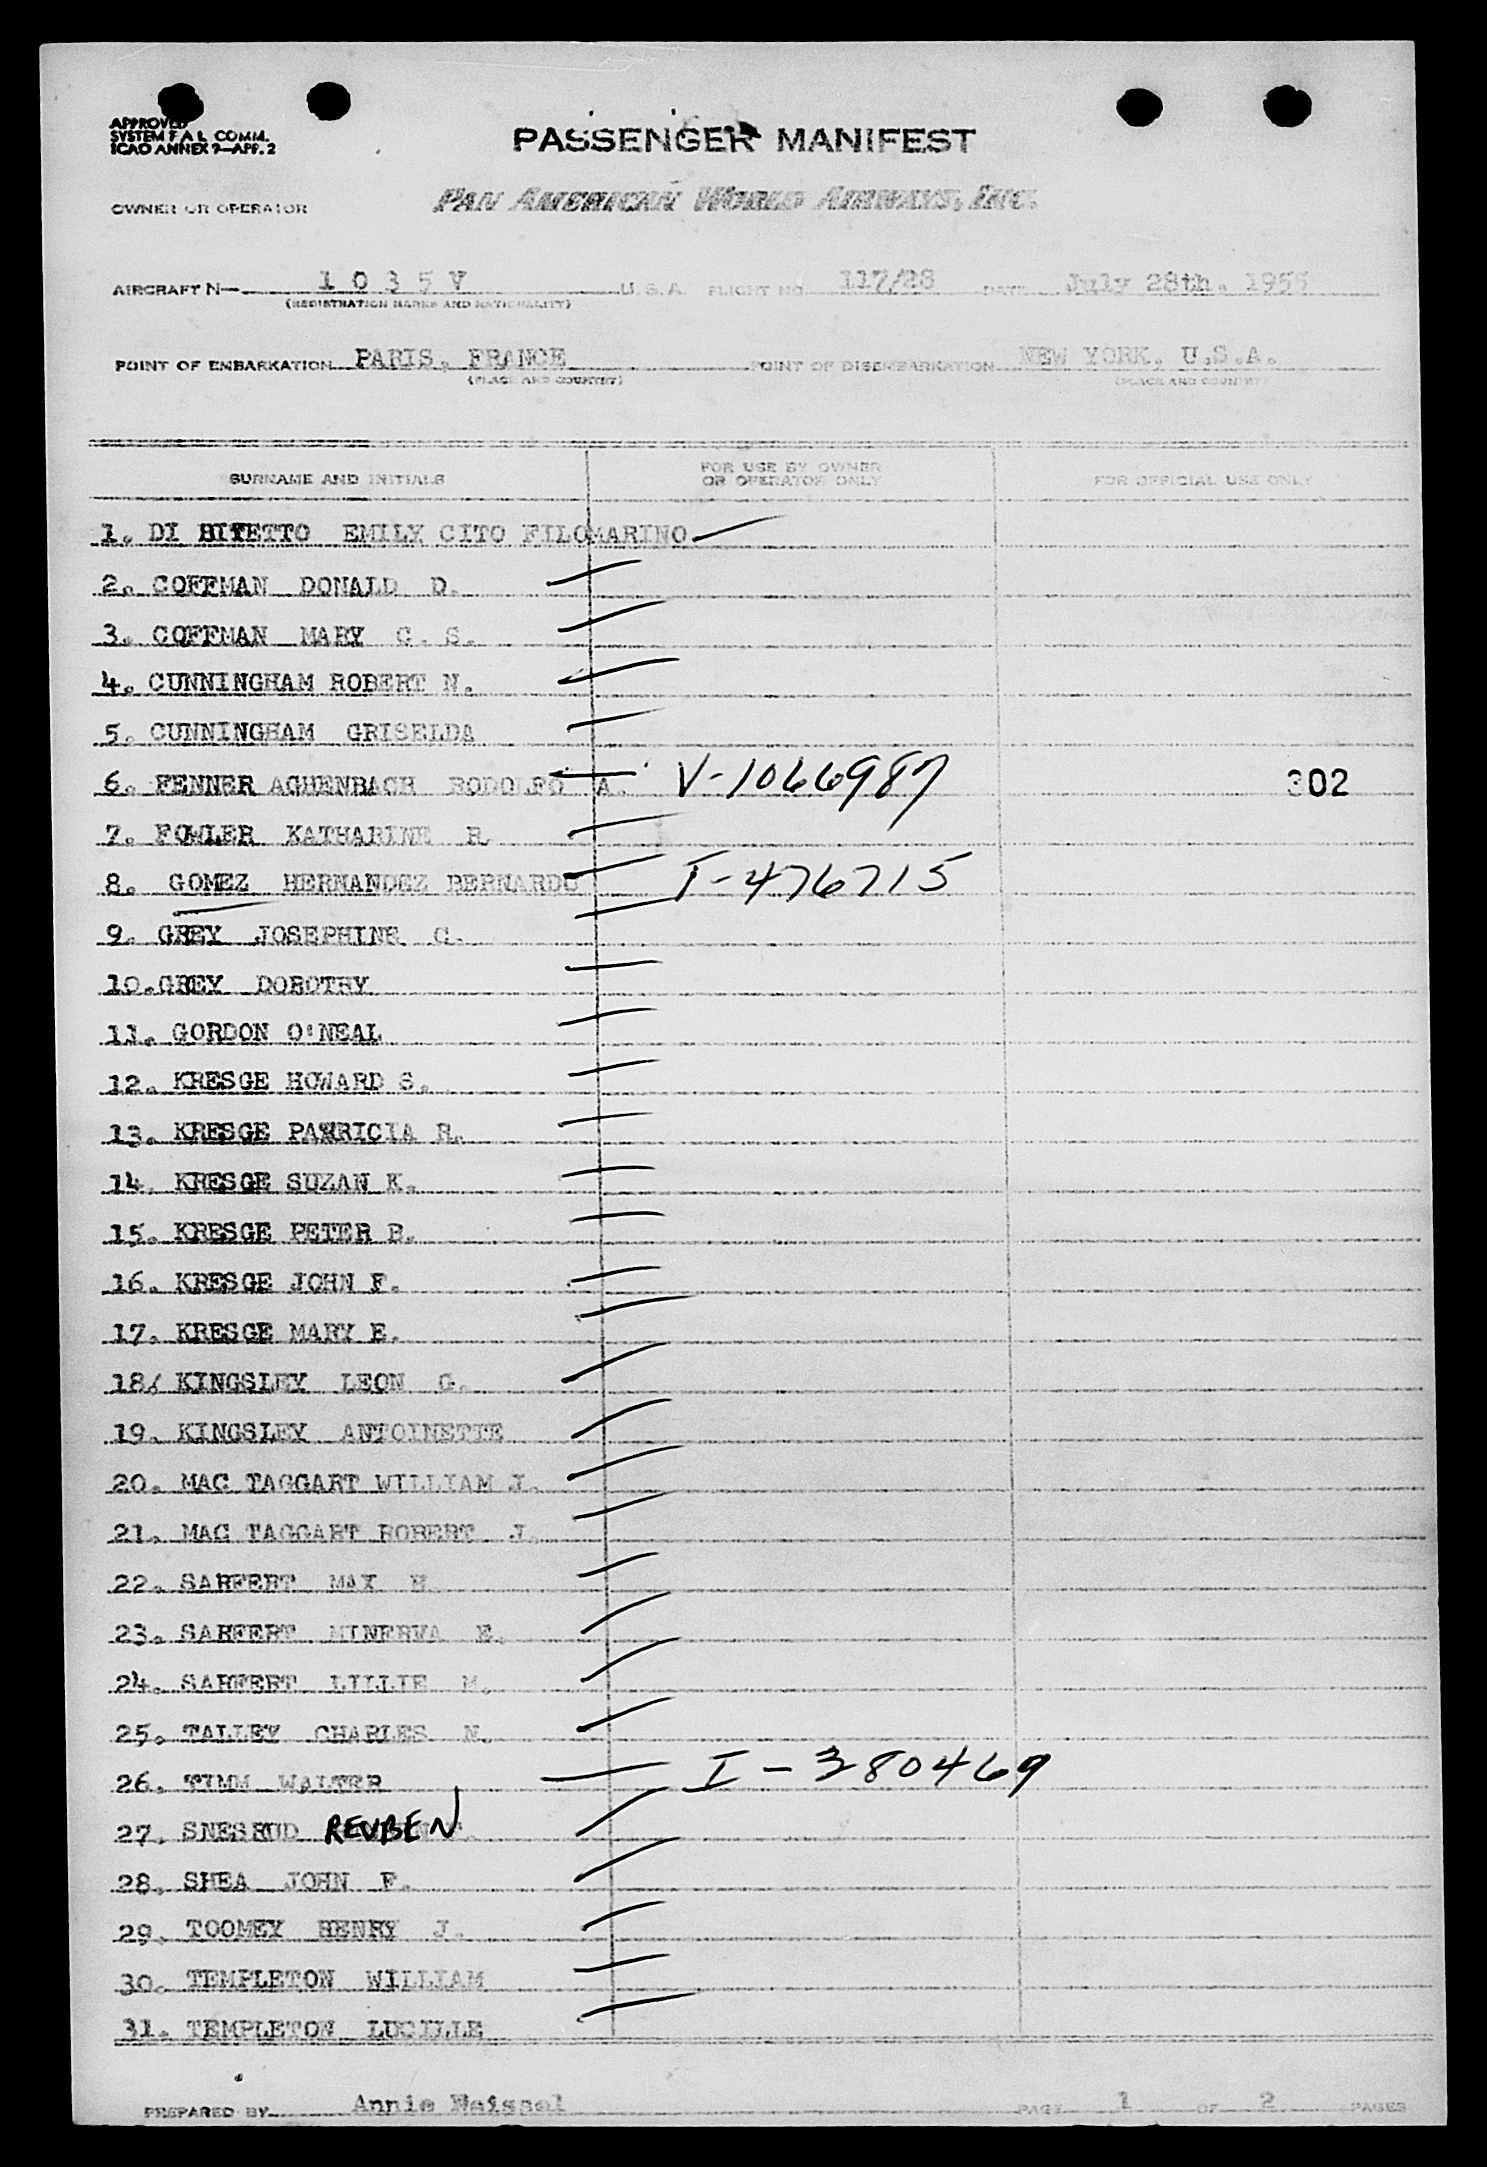 APPROVED
SYSTEM F A L COMM.
ICAO ANNEX 9—APP. 2
PASSENGER MANIFEST
OWNER OR OPERATOR
PAN AMERICAN WORLD AIRWAYS, INC.
AIRCRAFT N— 1 0 3 5 V U. S. A. FLIGHT NO. 117/28 DATE July 28th. 1955
(REGISTRATION MARKS AND NATIONALITY)
POINT OF EMBARKATION PARIS, FRANCE POINT OF DISEMBARKATION NEW YORK, U.S.A.
(PLACE AND COUNTRY) (PLACE AND COUNTRY)
SURNAME AND INITIALS FOR USE BY OWNER OR OPERATOR ONLY FOR OFFICIAL USE ONLY
1. DI BITETTO EMILY CITO FILOMARINO
2. COFFMAN DONALD D.
3. COFFMAN MARY C. S.
4. CUNNINGHAM ROBERT N.
5. CUNNINGHAM GRISELDA
6. FENNER ACHENBACH RODOLFO A. V-1066987 302
7. FOWLER KATHARINE R.
8. GOMEZ HERNANDEZ BERNARDO I-476715
9. GREY JOSEPHINE C.
10. GREY DOROTHY
11. GORDON O'NEAL
12. KRESGE HOWARD S.
13. KRESGE PATRICIA R.
14. KRESGE SUZAN K.
15. KRESGE PETER B.
16. KRESGE JOHN F.
17. KRESGE MARY E.
18/ KINGSLEY LEON G.
19. KINGSLEY ANTOINETTE
20. MAC TAGGART WILLIAM J.
21. MAC TAGGART ROBERT J.
22. SARFERT MAX H.
23. SARFERT MINERVA E.
24. SARFERT LILLIE M.
25. TALLEY CHARLES N.
26. TIMM WALTER I-380469
27. SNESRUD REUBEN
28. SHEA JOHN F.
29. TOOMEY HENRY J.
30. TEMPLETON WILLIAM
31. TEMPLETON LUCILLE
PREPARED BY Annie PAGE 1 OF 2 PAGES